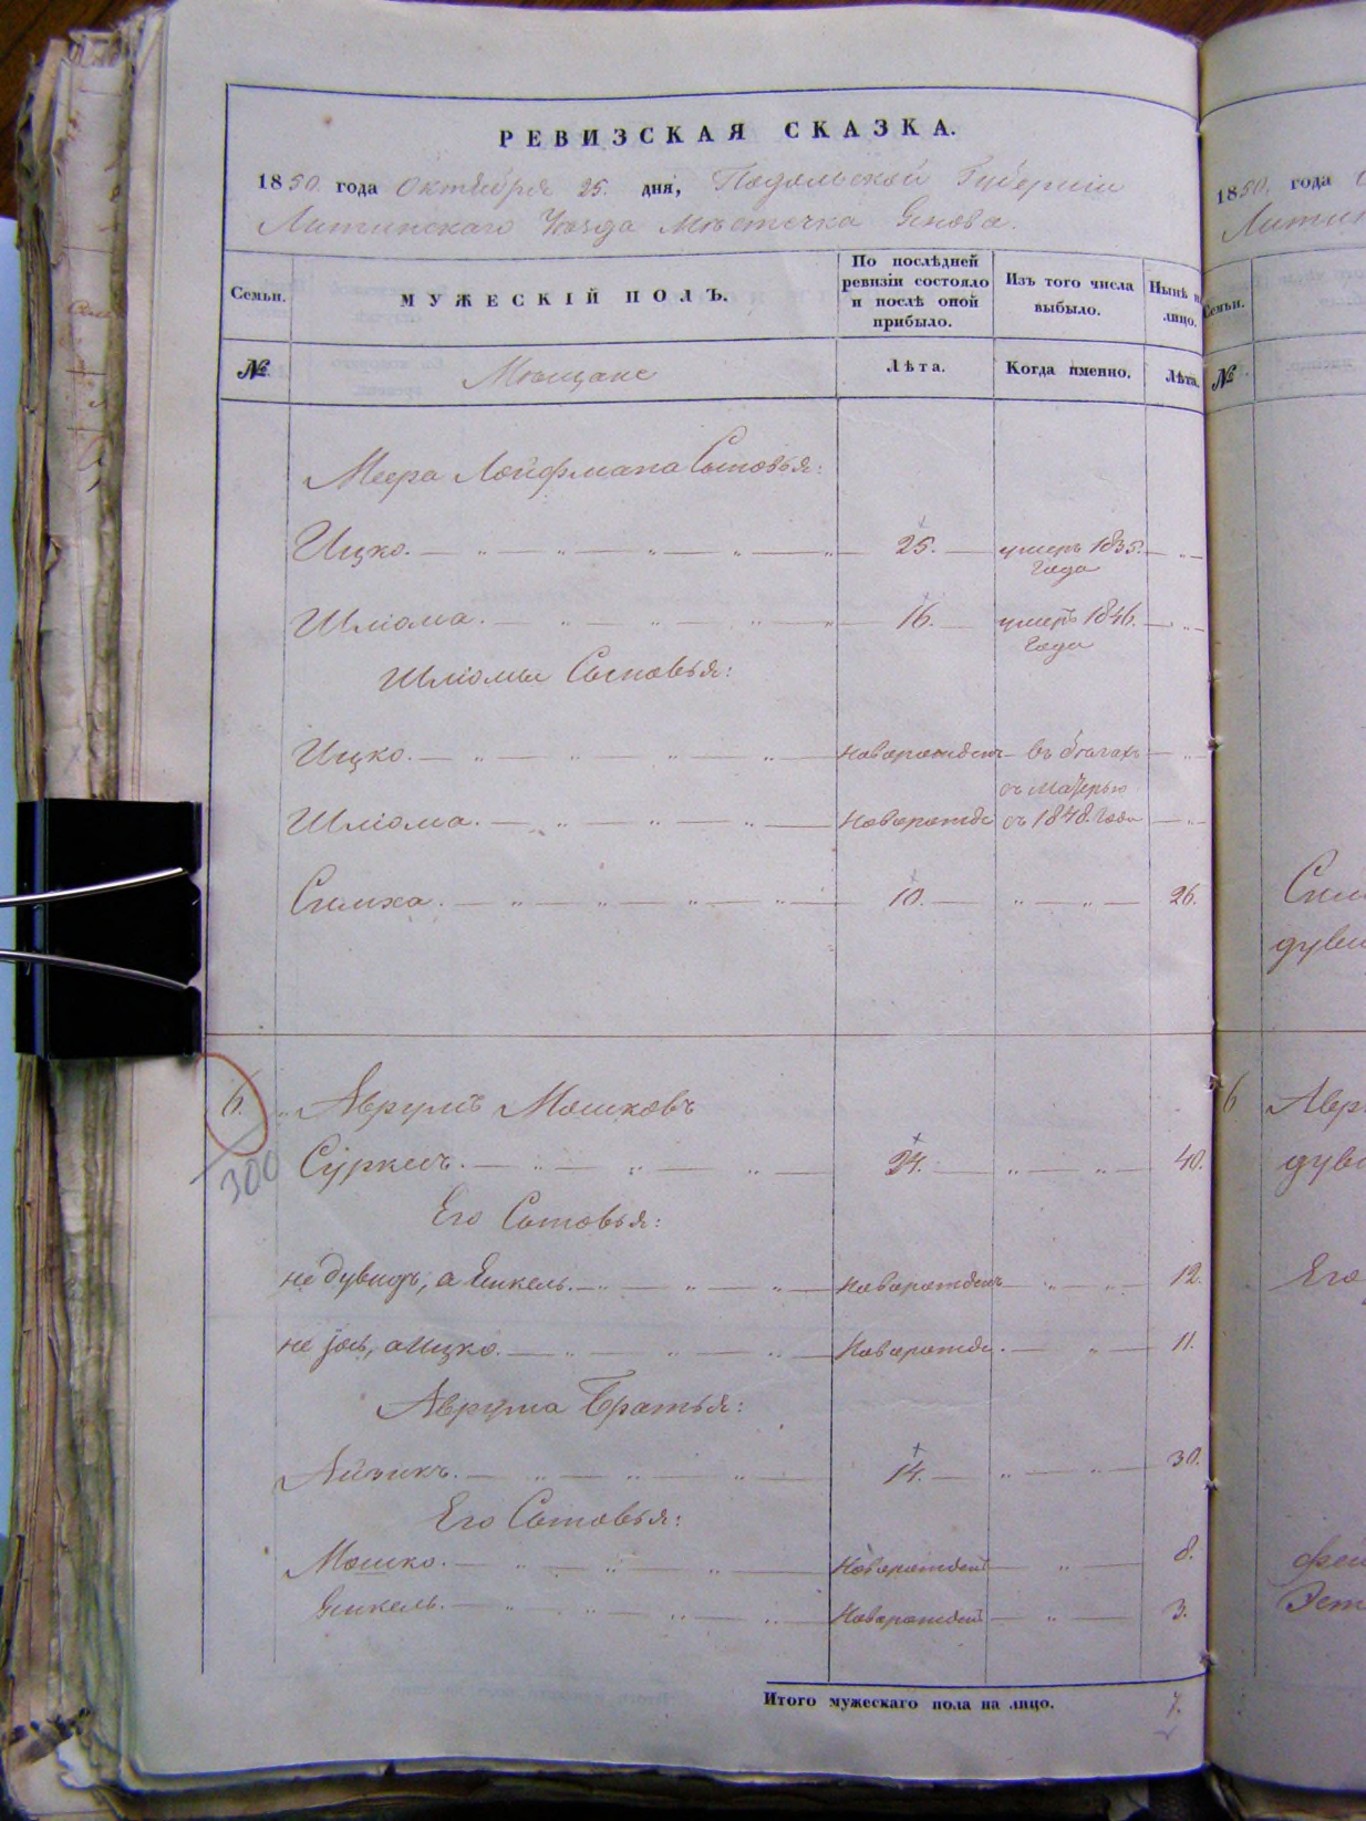 РЕВИЗСКАЯ СКАЗКА.
1850. года Октября 25. дня, Подольской Губерніи
Литинскаго Уѣзда Мѣстечка Янова.
Семьи. МУЖЕСКІЙ ПОЛЪ. По послѣдней ревизіи состояло и послѣ оной прибыло. Изъ того числа выбыло. Нынѣ на лицо.
№ Мѣщане Лѣта. Когда именно. Лѣта.
Меера Лойфмана Сыновья:
Ицко. 25. умеръ 1835. Года
Шліома. 16. умеръ 1846. Года
Шліомы Сыновья:
Ицко. Новорожденъ въ бѣгахъ
съ матерью
Шліома. Новорожде съ 1848. Года
Симха. 10. 26.
6. Аврумъ Мошковъ
300 Суркись. 24. 40.
Его Сыновья:
не Дувидъ, а Енкель. Новорожденъ 12.
не Іось, а Ицко. Новорожде. 11.
Аврума Братья:
Айзикъ. 14. 30.
Его Сыновья:
Мошко. Новорожденъ 8.
Янкель. Новорожденъ 3.
Итого мужескаго пола на лицо. 7.
1850. года
Семьи.
№
6
Его